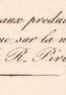 aux produ
sur la n
R. Pir